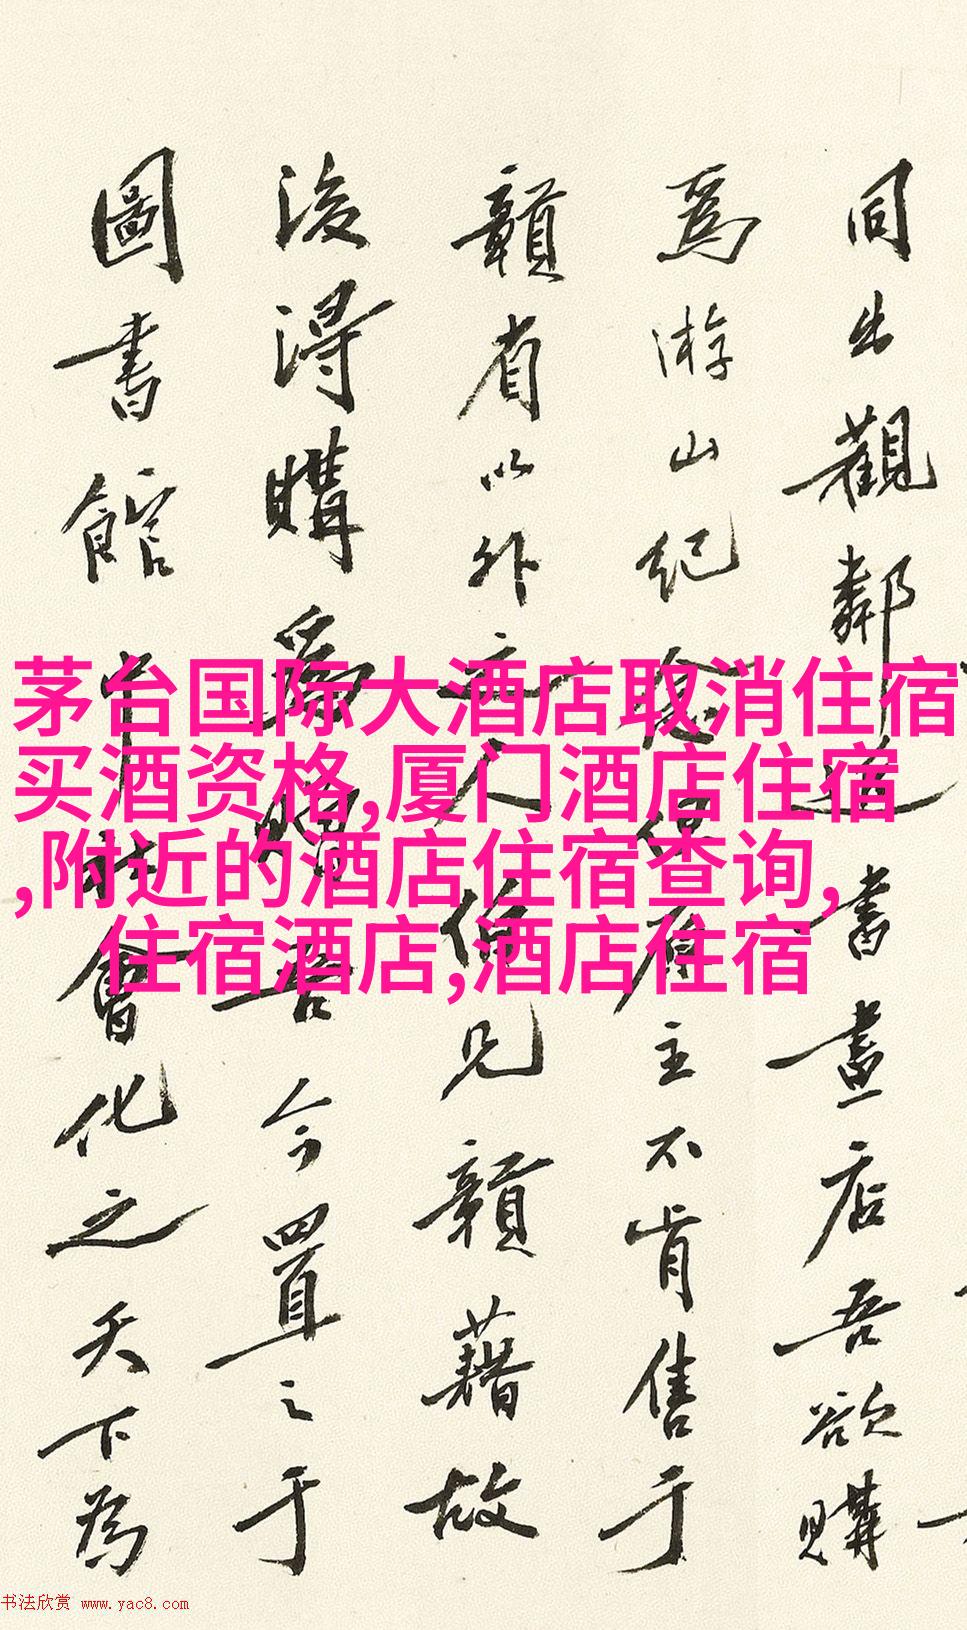 茅台国际大酒店取消住宿
买酒资格,厦门酒店住宿
,附近的酒店住宿查询,
住宿酒店,酒店住宿
同出觀鄰道書畫店吾欲購
爲游山紀念但店主不肯售于
贛省以外之人偶見贛藉故
後得購爲贈吾今置之于
圖書館中社會化之天下為
书法欣赏 www.yac8.com